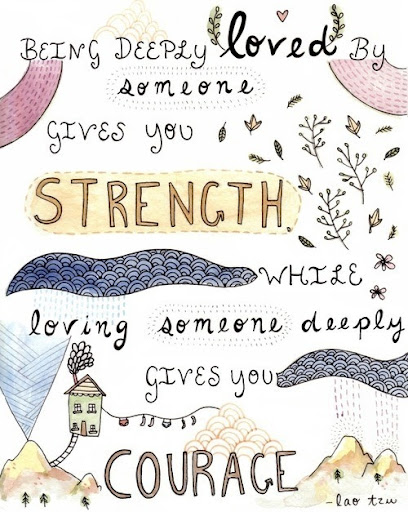 BEING DEEPLY loved BY
someone
GIVES YOU
STRENGTH,
WHILE
loving someone deeply
GIVES YOU
COURAGE
-lao tzu